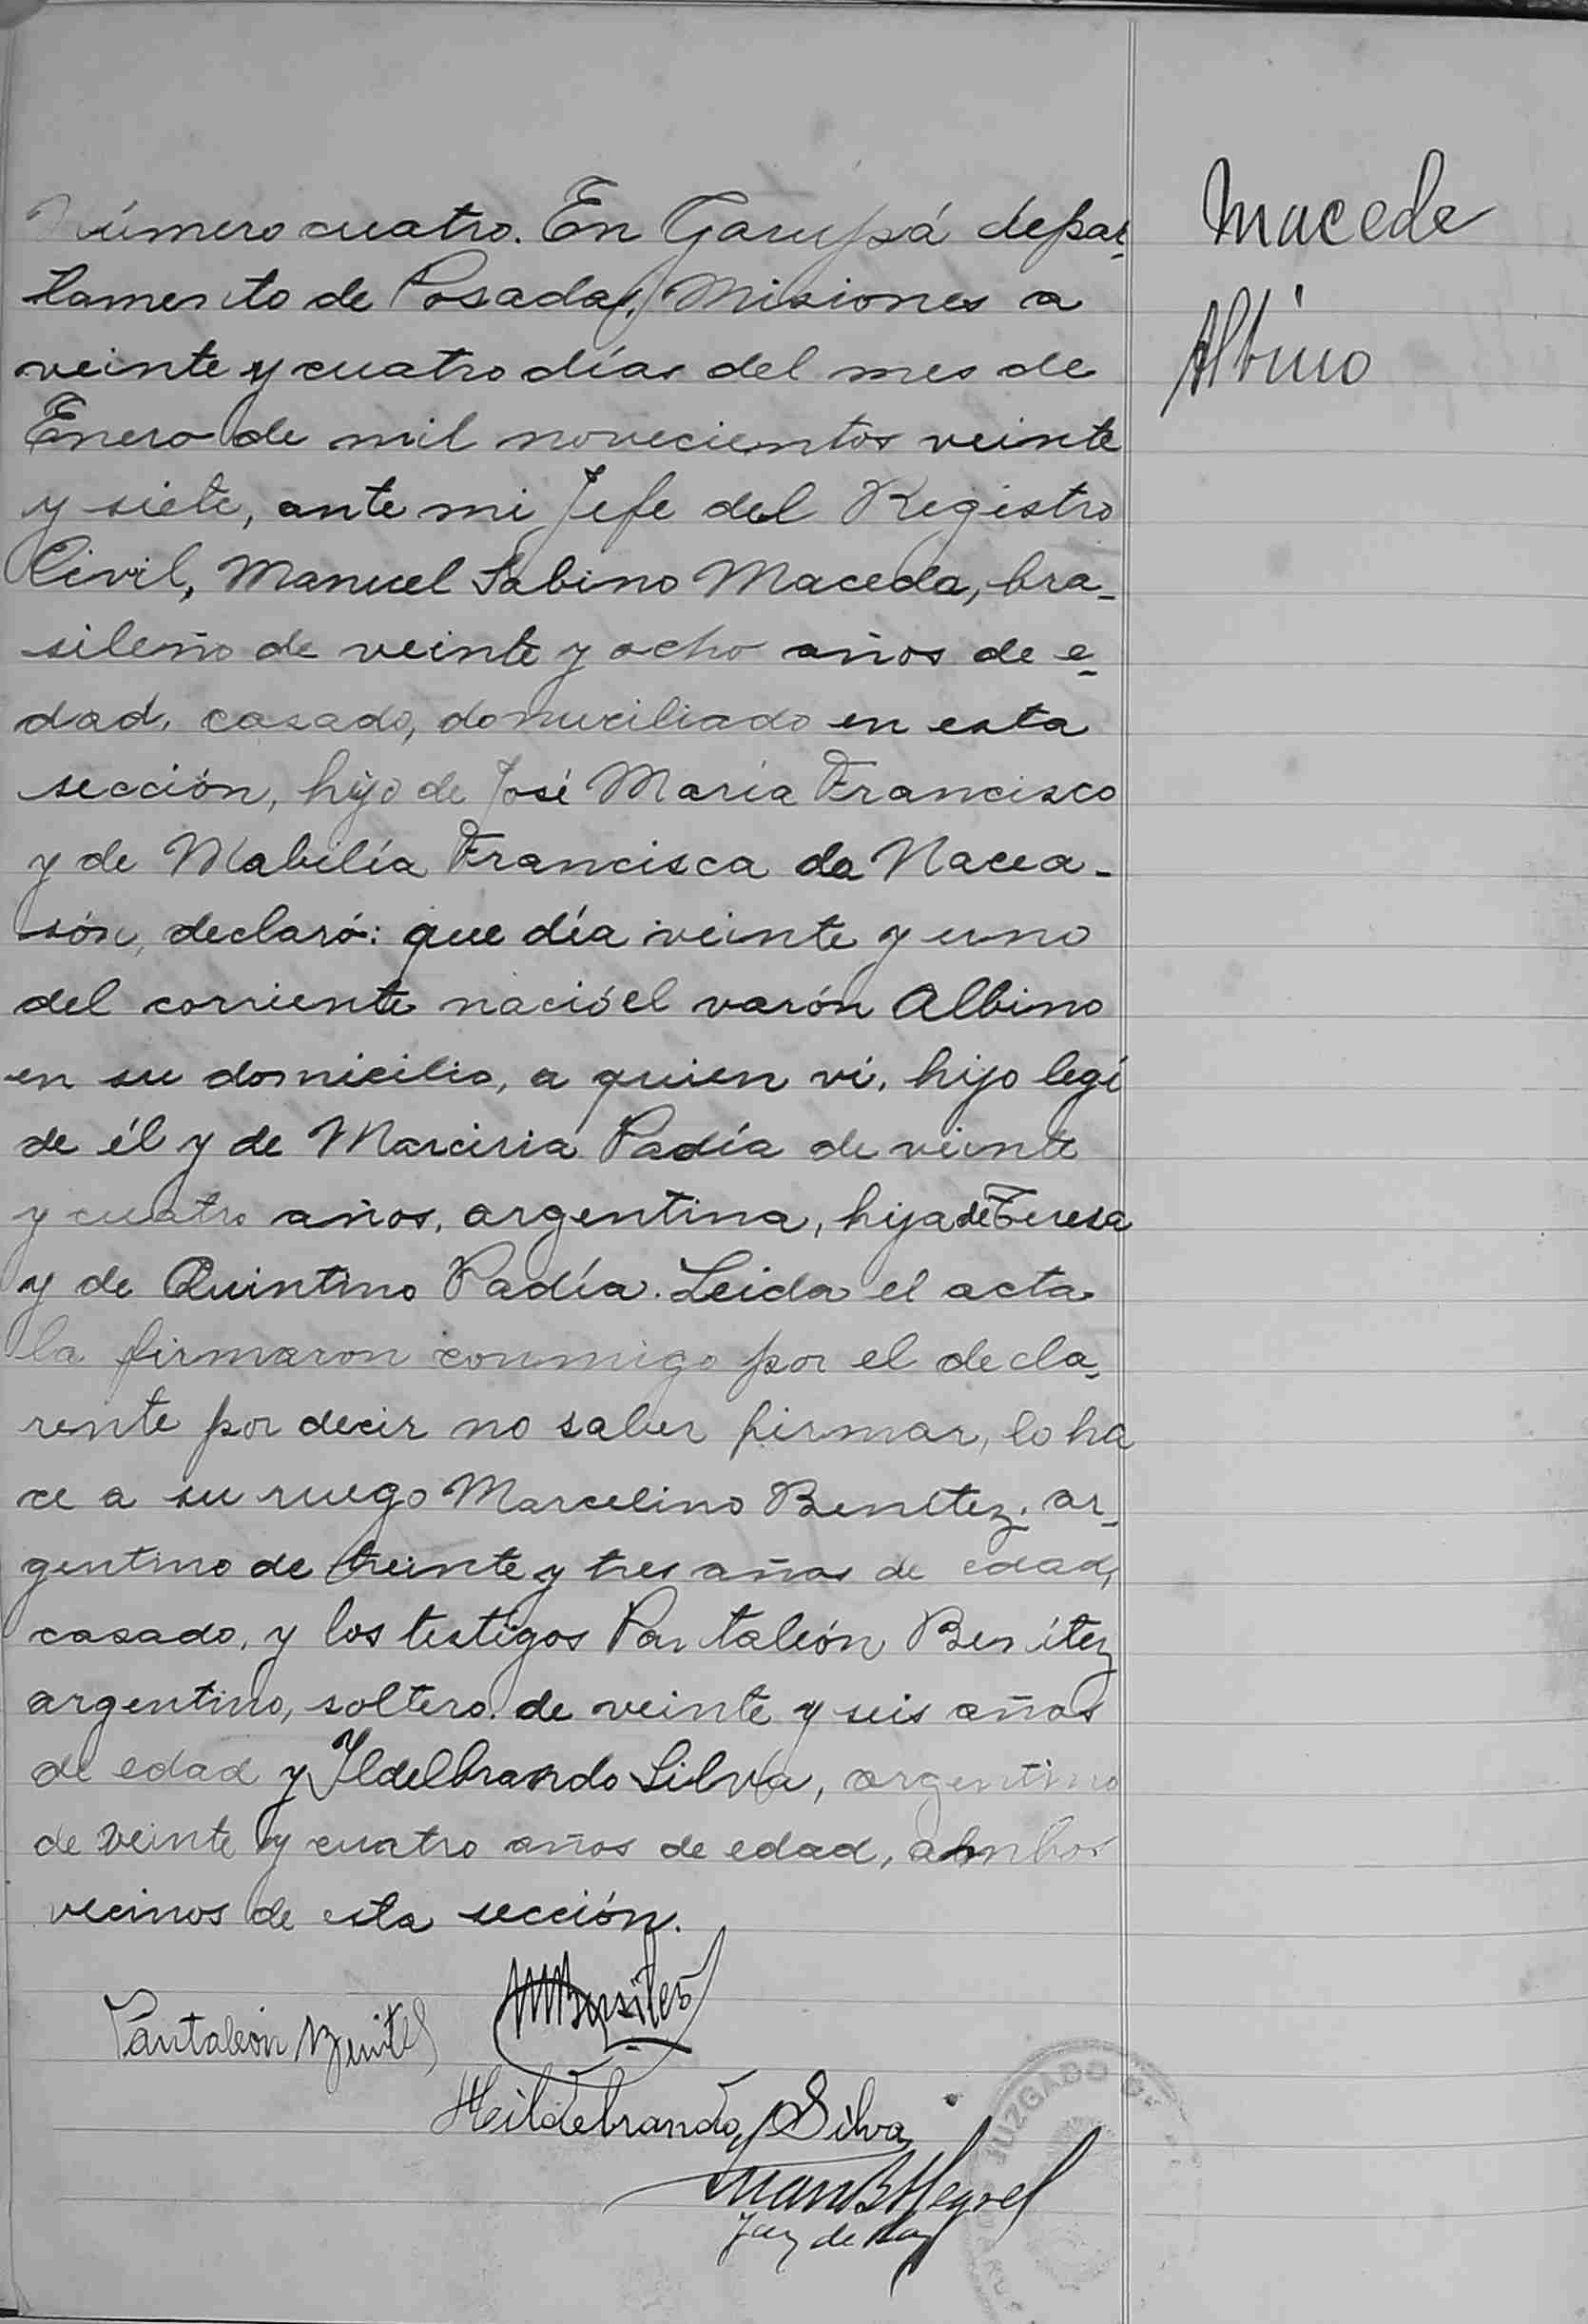 Macede
Albino
Número cuatro. En Garupá depar-
tamento de Posadas, Misiones a
veinte y cuatro días del mes de
Enero de mil novecientos veinte
y siete, ante mi Jefe del Registro
Civil, Manuel Sabino Maceda, bra-
sileño de veinte y ocho años de e-
dad, casado, domiciliado en esta
sección, hijo de José María Francisco
y de Mabilía Francisca da Nacea-
són, declaró: que día veinte y uno
del corriente nació el varón Albino
en su domicilio, a quien vi, hijo legi
de él y de Marciria Padía de viente
y cuatro años, argentina, hija de Teresa
y de Quintino Padía. Leida el acta
la firmaron conmigo por el decla-
rente por decir no saber firmar, lo ha
ce a su ruego Marcelino Benítez, ar-
gentino de treinte y tres años de edad,
casado, y los testigos Pantaleón Benítez
argentino, soltero de veinte y seis años
de edad y Ildelbrando Silva, argentino
de veinte y cuatro años de edad, ambos
vecinos de esta sección.
Pantaleón Benitez
Hildebrando Silva
Juan B
Juez de Paz
JUZGADO DE